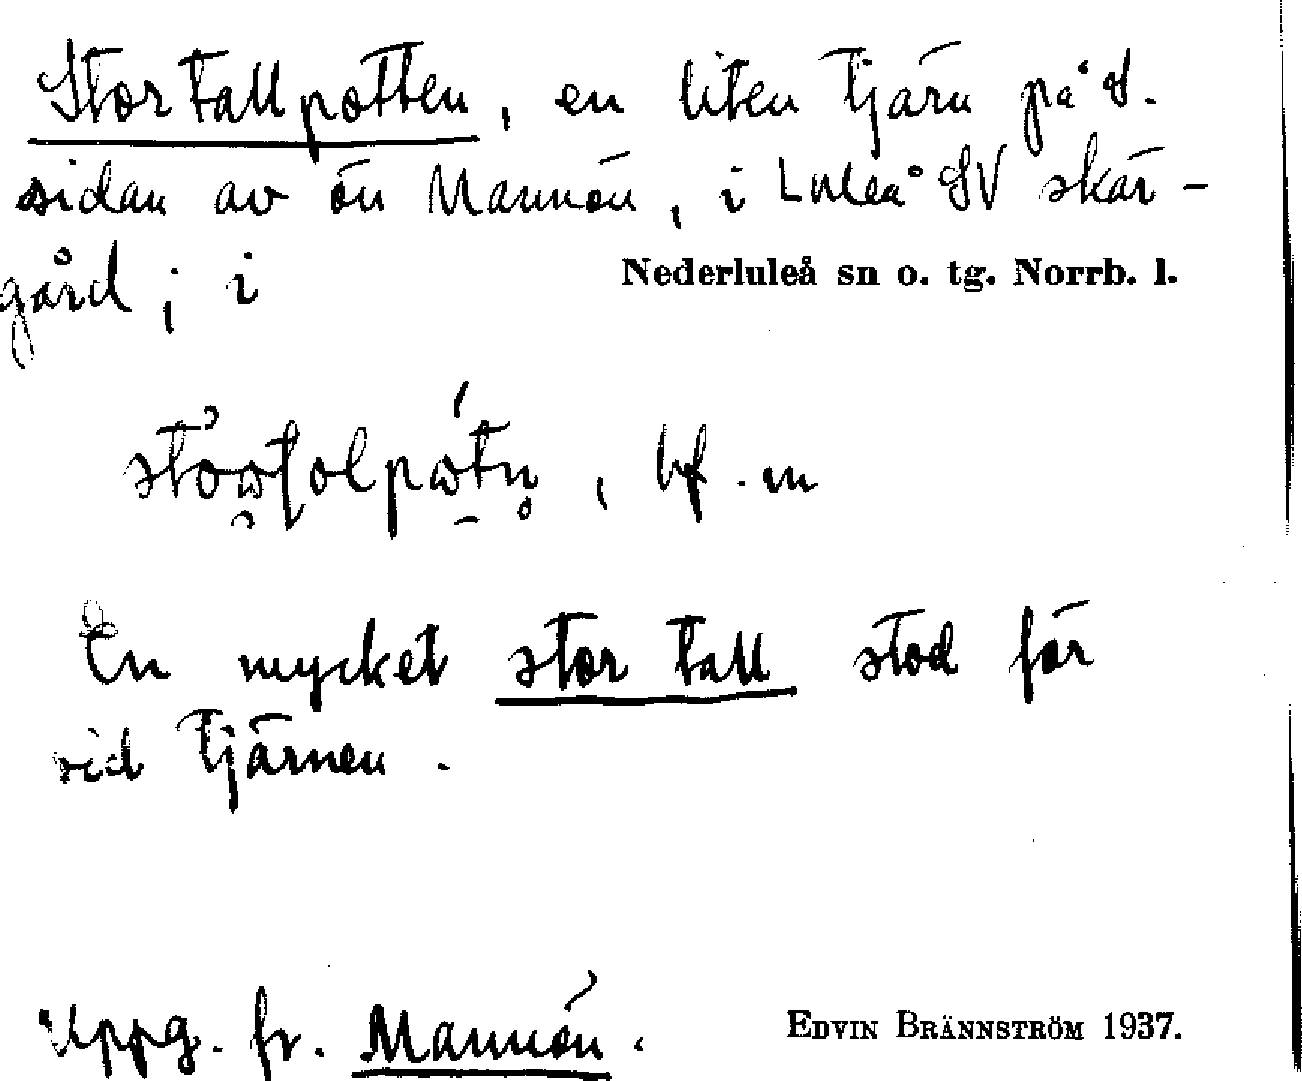 Stortallpotten, en liten tjärn på S.
sidan av ön Mannön, i Luleå SV skär-
gård; i Nederluleå sn o. tg. Norrb. l.
bf. m
En mycket stor tall stod för
vid tjärnen.
Uppg. fr. Mannön. EDVIN BRÄNNSTRÖM 1937.